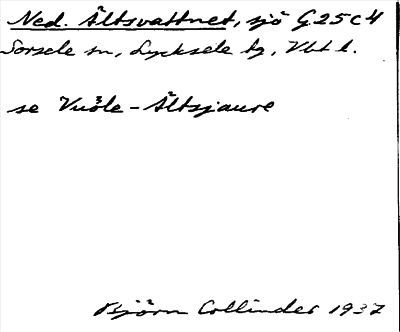 Ned. Ältsvattnet, sjö G25c4
Sorsele sn, Lycksele tg, Vbt l.
se Vuöle-Ältsjaure
Björn Collinder 1937